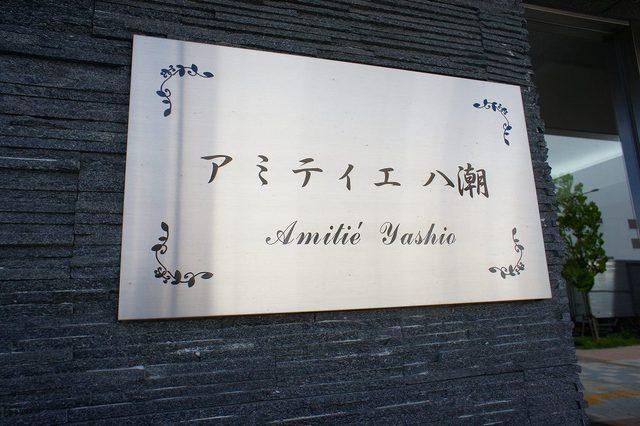 アミティエ 八潮
Amitié Yashio